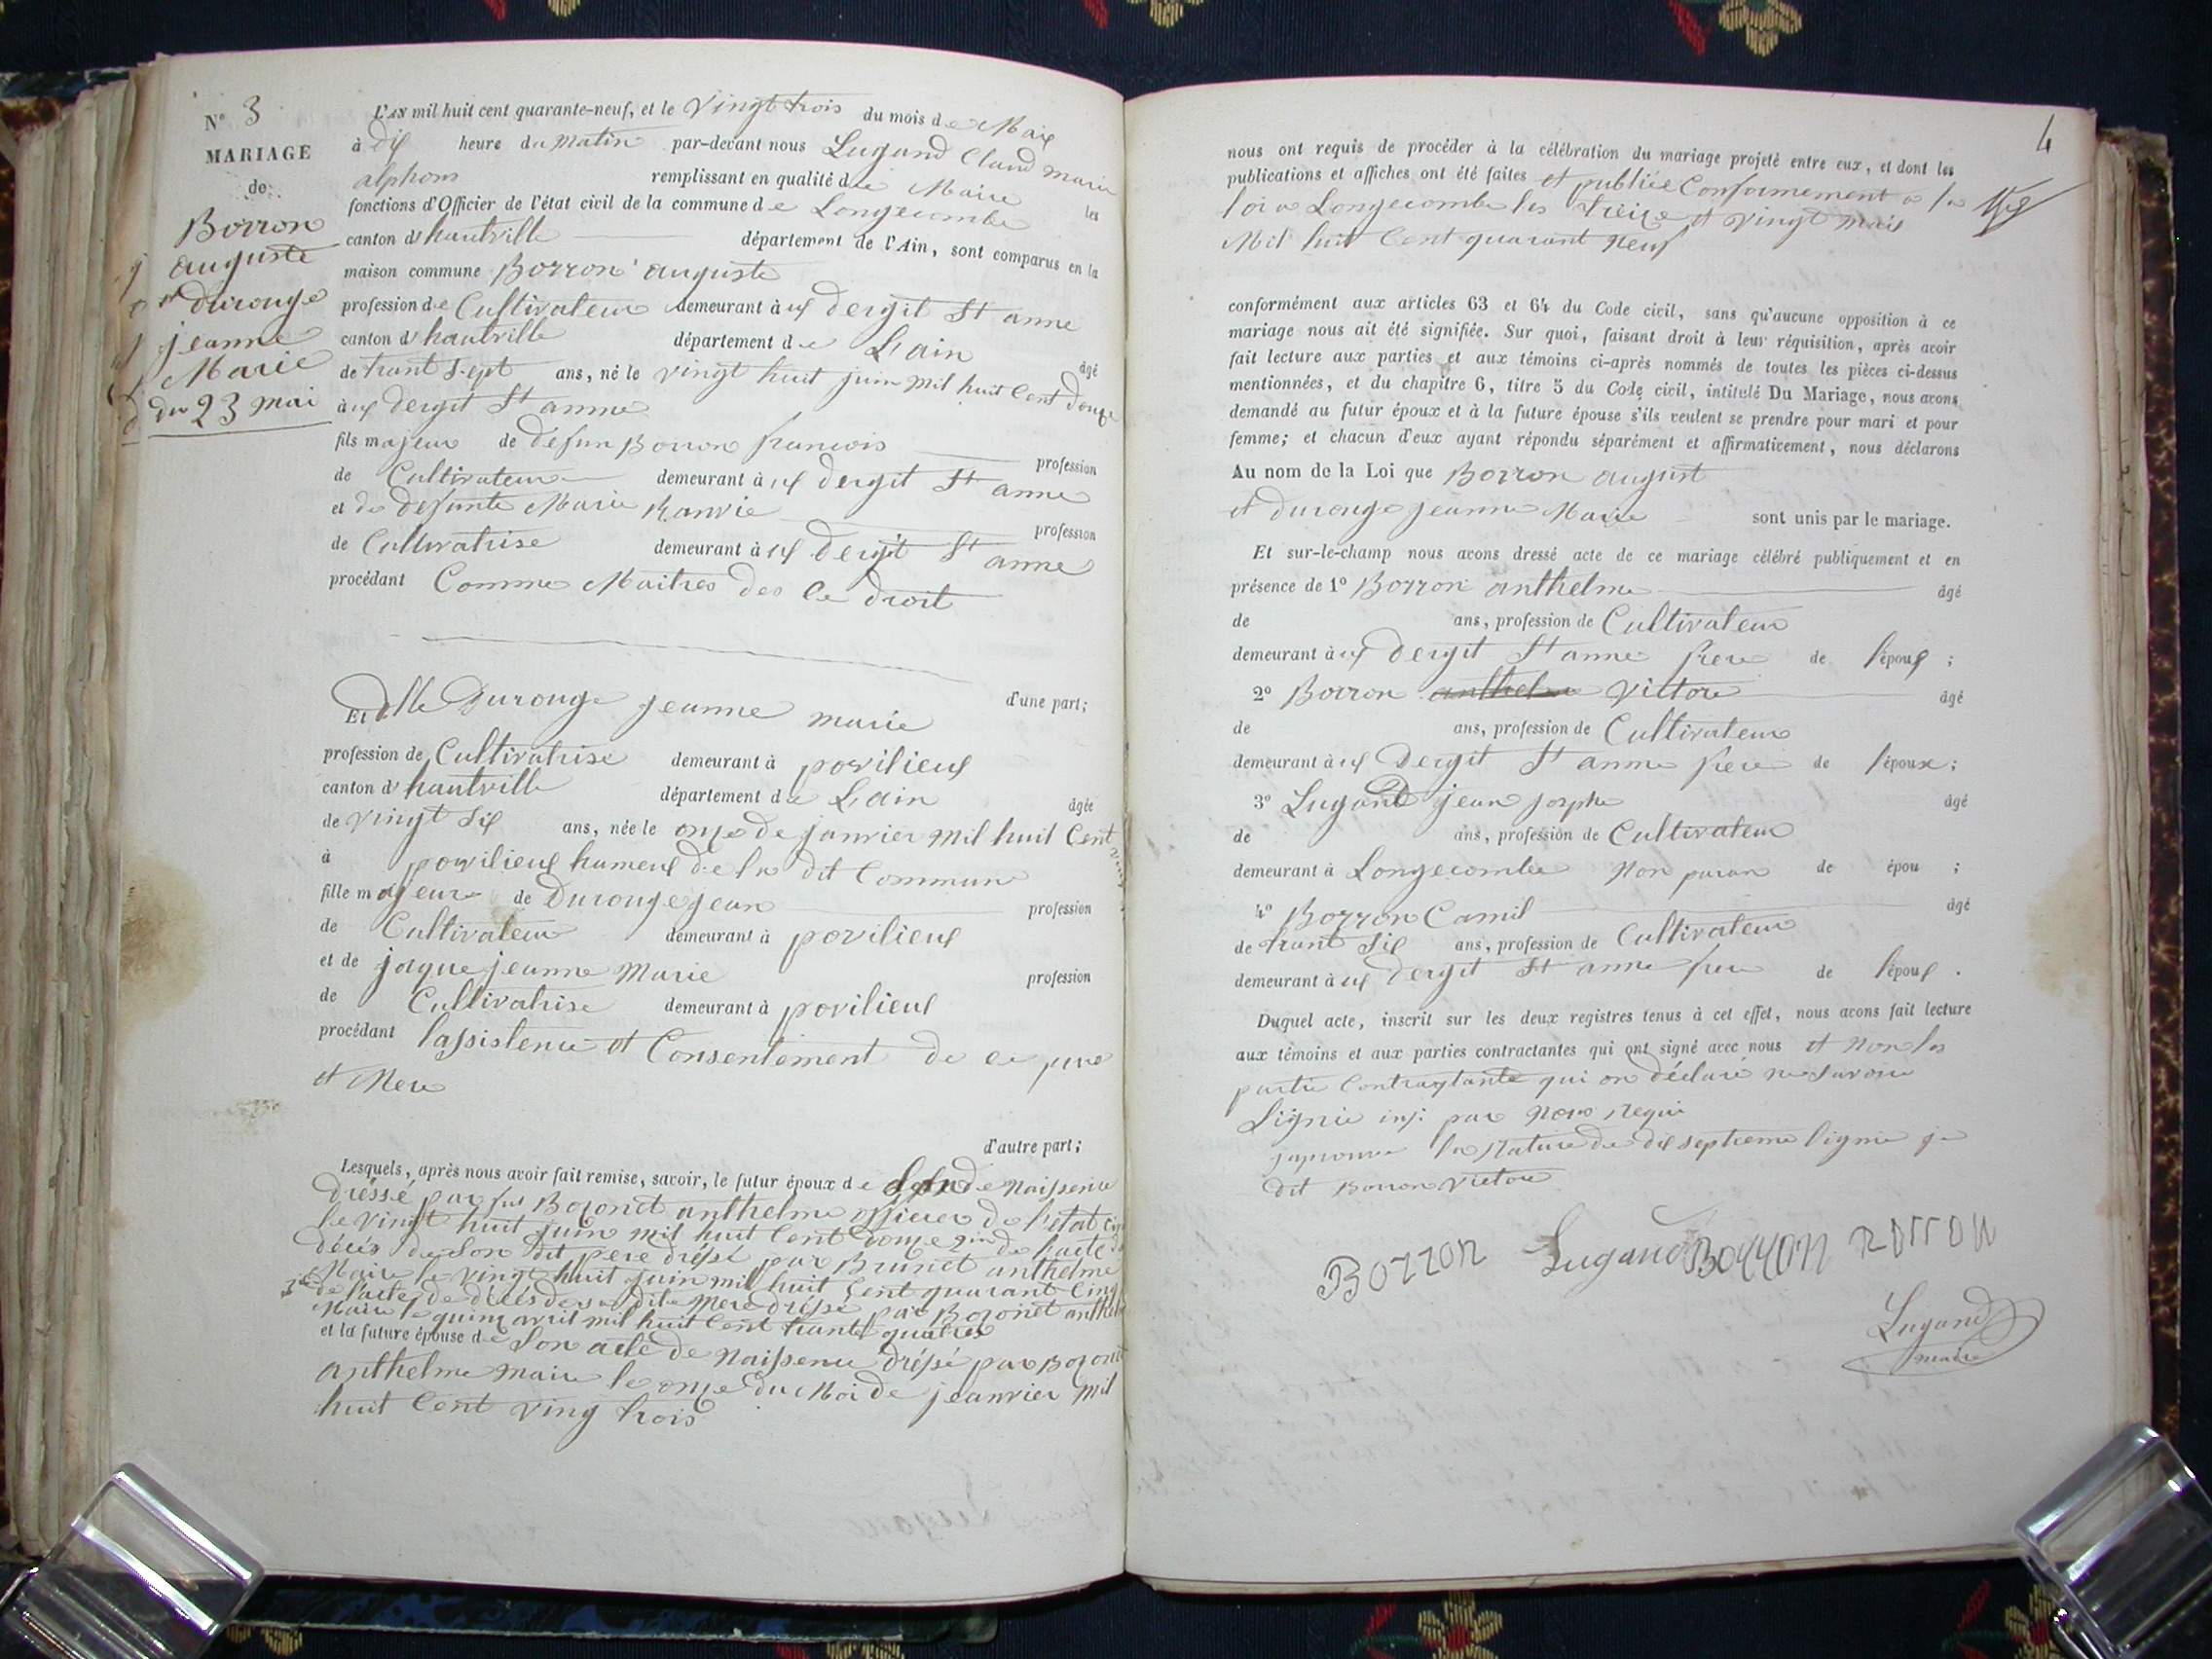 N° 3
MARIAGE
de
Borron
auguste
et durouge
jeanne
Marie
du 23 mai
L'AN mil huit cent quarante-neuf, et le vingt trois du mois de Mais
à dix heure du matin par-devant nous Lugand Claud marie
alphons remplissant en qualité de Maire les
fonctions d'Officier de l'état civil de la commune de Longecombe
canton d'hautville département de l'Ain, sont comparus en la
maison commune Borron auguste
profession de Cultivateur demeurant à dergit St anne
canton d'hautville département de L'ain âgé
de trant sept ans, né le vingt huit juin mil huit Cent douze
à dergit St anne
fils majeur de defun Borron francois profession
de Cultivateur demeurant à dergit St anne
et de defunte Marie Ranvie profession
de Cultivatrise demeurant à dergit St anne
procédant Comme Maitres des Ce droit
d'une part;
Et dlle Durouge jeanne marie
profession de Cultivatrise demeurant à povilieux
canton d'hautville département de L'ain âgée
de vingt six ans, née le onze de janvier mil huit Cent
à povilieux hameux de la dit Commune
fille majeure de Durouge jean profession
de Cultivateur demeurant à povilieux
et de jaque jeanne Marie profession
de Cultivatrise demeurant à povilieux
procédant lassistence et Consentement de ce pere
et Mere
d'autre part;
Lesquels, après nous avoir fait remise, savoir, le futur époux de de naissence
dréssé par Bozonet anthelme officier de l'etat
le vingt huit juin mil huit Cent douze de lacte
décés de Son dit pere dréssé par Brunet anthelme
Maire le vingt huit juin mil huit Cent quarant Cinq
de l'acte de décés de sa dite Mere dréssé par Bozonet
Maire le quinz avril mil huit Cent trant quatre
et la future épouse de Son acte de naissence dréssé par Bozonet
anthelme maire le onze du Moi de jeanvier mil
huit Cent ving trois
4
nous ont requis de procéder à la célébration du mariage projeté entre eux, et dont les
publications et affiches ont été faites et publiée Conformement a la
loi a Longecombe les treize et vingt mais
Mil huit Cent quarant neuf
conformément aux articles 63 et 64 du Code civil, sans qu'aucune opposition à ce
mariage nous ait été signifiée. Sur quoi, faisant droit à leur réquisition, après avoir
fait lecture aux parties et aux témoins ci-après nommés de toutes les pièces ci-dessus
mentionnées, et du chapitre 6, titre 5 du Code civil, intitulé Du Mariage, nous avons
demandé au futur époux et à la future épouse s'ils veulent se prendre pour mari et pour
femme; et chacun d'eux ayant répondu séparément et affirmativement, nous déclarons
Au nom de la Loi que Borron august
et durouge jeanne Marie sont unis par le mariage.
Et sur-le-champ nous avons dressé acte de ce mariage célébré publiquement et en
présence de 1° Borron anthelme âgé
de ans, profession de Cultivateur
demeurant à dergit St anne frere de l'époux ;
2° Borron anthelme Vittore âgé
de ans, profession de Cultivateur
demeurant à dergit St anne frere de l'époux ;
3° Lugand jean josphe âgé
de ans, profession de Cultivateur
demeurant à Longecombe non paran de épou ;
4° Borron Camil âgé
de trant six ans, profession de Cultivateur
demeurant à dergit St anne frere de l'époux .
Duquel acte, inscrit sur les deux registres tenus à cet effet, nous avons fait lecture
aux témoins et aux parties contractantes qui ont signé avec nous et non les
partie Contraqtante qui on déclaré ne Savoir
Signie par nous requi
la Rature de dix septieme lignie
dit Borron Victore
Borron Lugand Borron Borron
Lugand
maire